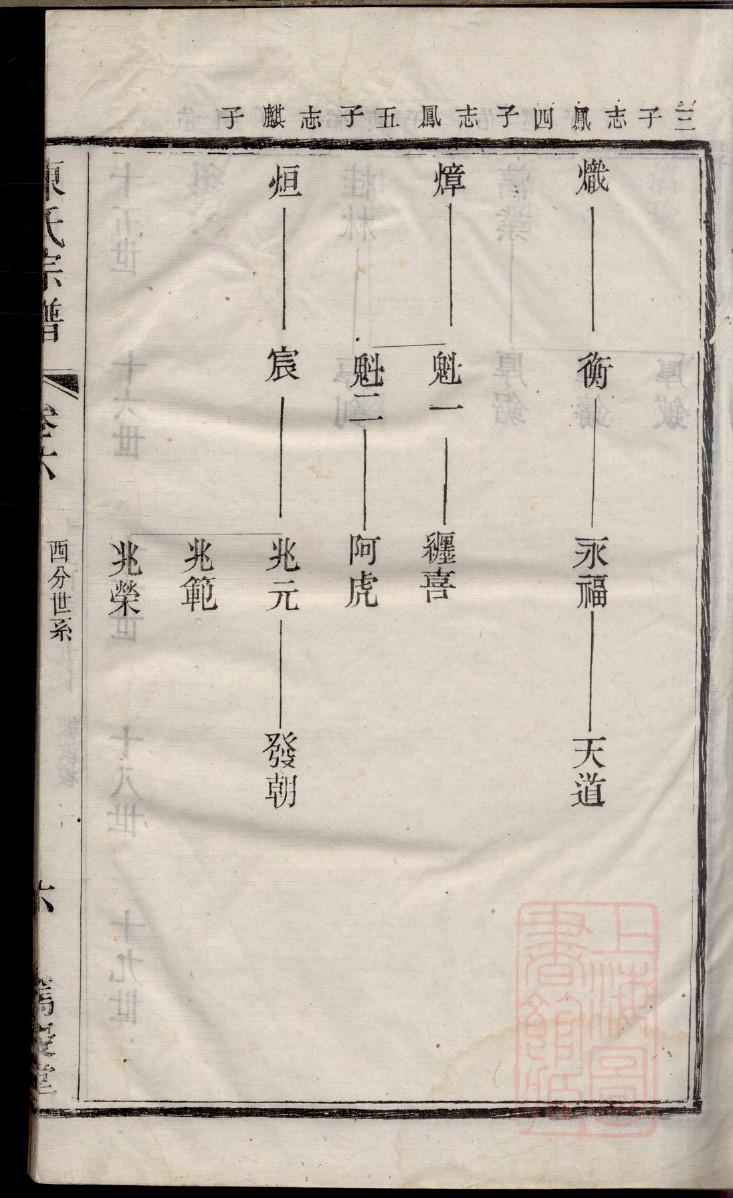 志鳳三子 志鳳四子 志鳳五子 志麒子
熾 衡 永福 天道
燑 魁一 纒喜
魁二 阿虎
烜 宸 兆元 發朝
兆範
兆榮
陳氏宗譜 卷六 西分世系 六
上海圖書館藏